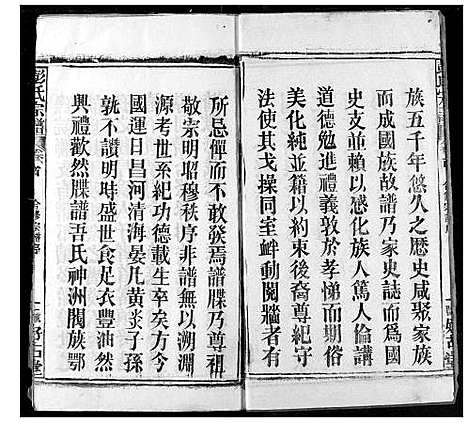 族五千年悠久之歷史咸聚家族
而成國族故譜乃家史誌而爲國
史並賴以感化族人篤人倫講
道德勉進禮義敦於孝悌而剔俗
美化純並籍以約束後裔尊紀守
法使其戈操同室衅動䦧牆者有
所忌憚而不敢發焉譜牒乃尊祖
敬宗明昭穆秩序非譜無以溯淵
源考世系紀功德載生卒矣方今
國運日昌河清海晏凡黃炎子孫
孰不讚明時盛世食足衣豐油然
興禮歡然牒譜吾氏神洲閥族鄂
彭氏宗譜
卷首
合修宗譜序